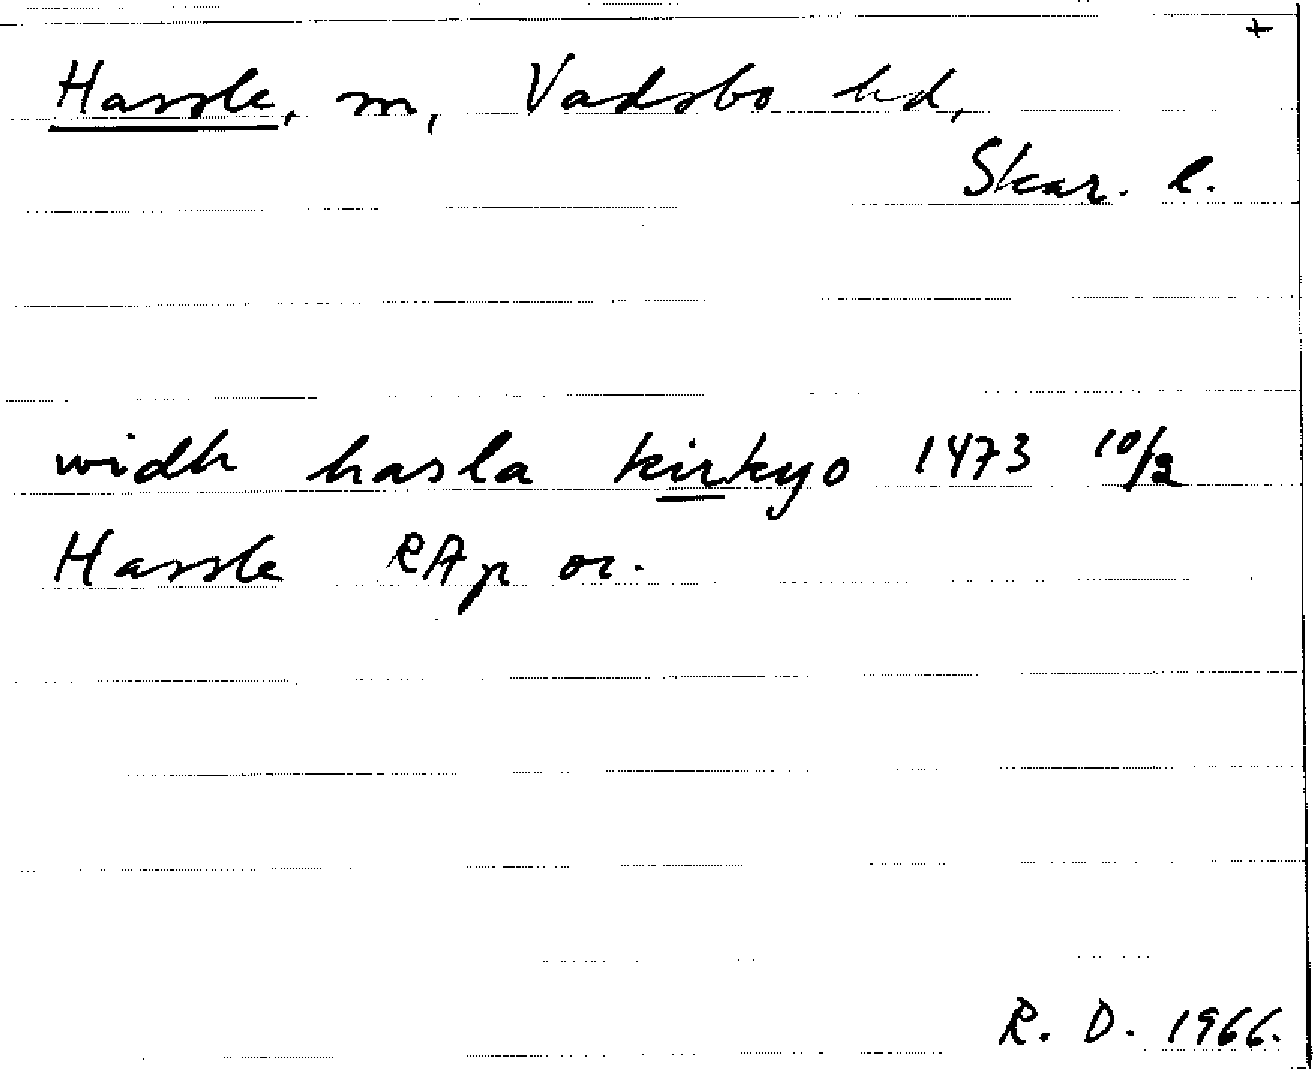 +
Hassle, sn, Vadsbo hd,
Skar. l.
widh hasla kirkyo 1473 10/2
Hassle RAp or.
R. D. 1966.